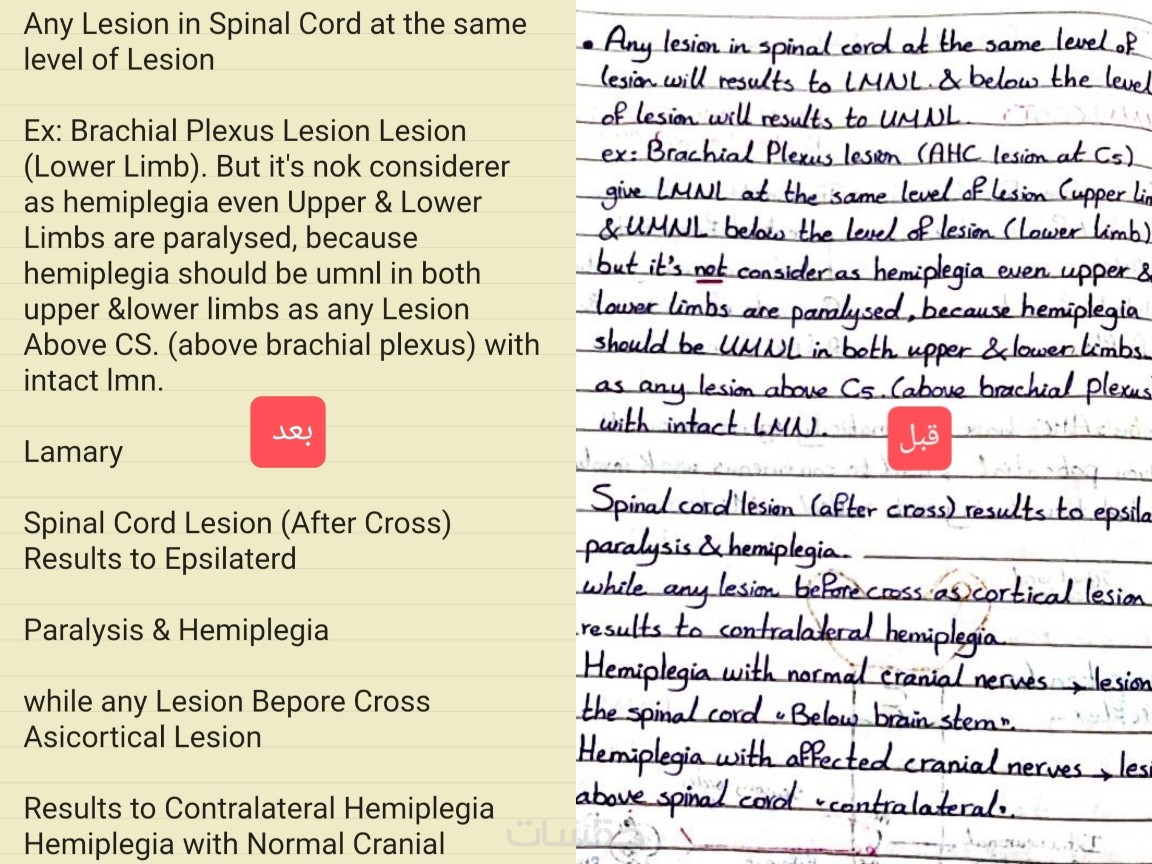 Any Lesion in Spinal Cord at the same
level of Lesion
Ex: Brachial Plexus Lesion Lesion
(Lower Limb). But it's nok considerer
as hemiplegia even Upper & Lower
Limbs are paralysed, because
hemiplegia should be umnl in both
upper &lower limbs as any Lesion
Above CS. (above brachial plexus) with
intact lmn.
بعد
Lamary
Spinal Cord Lesion (After Cross)
Results to Epsilaterd
Paralysis & Hemiplegia
while any Lesion Bepore Cross
Asicortical Lesion
Results to Contralateral Hemiplegia
Hemiplegia with Normal Cranial
• Any lesion in spinal cord at the same level of
lesion will results to LMNL. & below the level
of lesion will results to UMNL.
ex: Brachial Plexus lesion (AHC lesion at C5)
give LMNL at the same level of lesion (upper lim
& UMNL below the level of lesion (lower limb)
but it's not consider as hemiplegia even upper &
lower limbs are paralysed, because hemiplegia
should be UMNL in both upper & lower limbs
as any lesion above C5. (above brachial plexus
with intact LMN.
قبل
Spinal cord lesion (after cross) results to epsila
paralysis & hemiplegia.
while any lesion before cross as cortical lesion
results to contralateral hemiplegia
Hemiplegia with normal cranial nerves → lesion
the spinal cord "Below brain stem".
Hemiplegia with affected cranial nerves → lesi
above spinal cord "contralateral".
خمسات